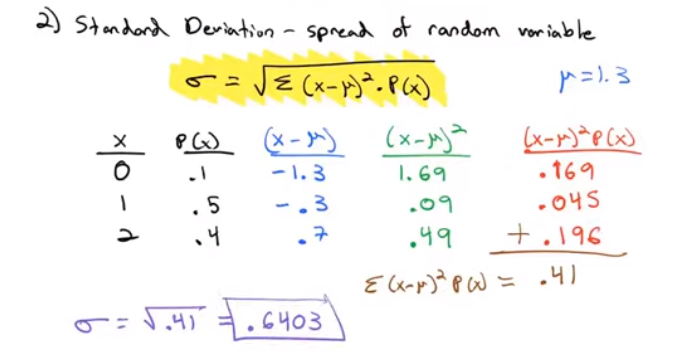 2) Standard Deviation - spread of random variable
σ = √Σ (x-μ)². P(x)
μ = 1.3
x P(x) (x - μ) (x - μ)² (x-μ)² P(x)
0 .1 -1.3 1.69 .169
1 .5 -.3 .09 .045
2 .4 .7 .49 + .196
Σ (x-μ)² P(x) = .41
σ = √.41 = .6403